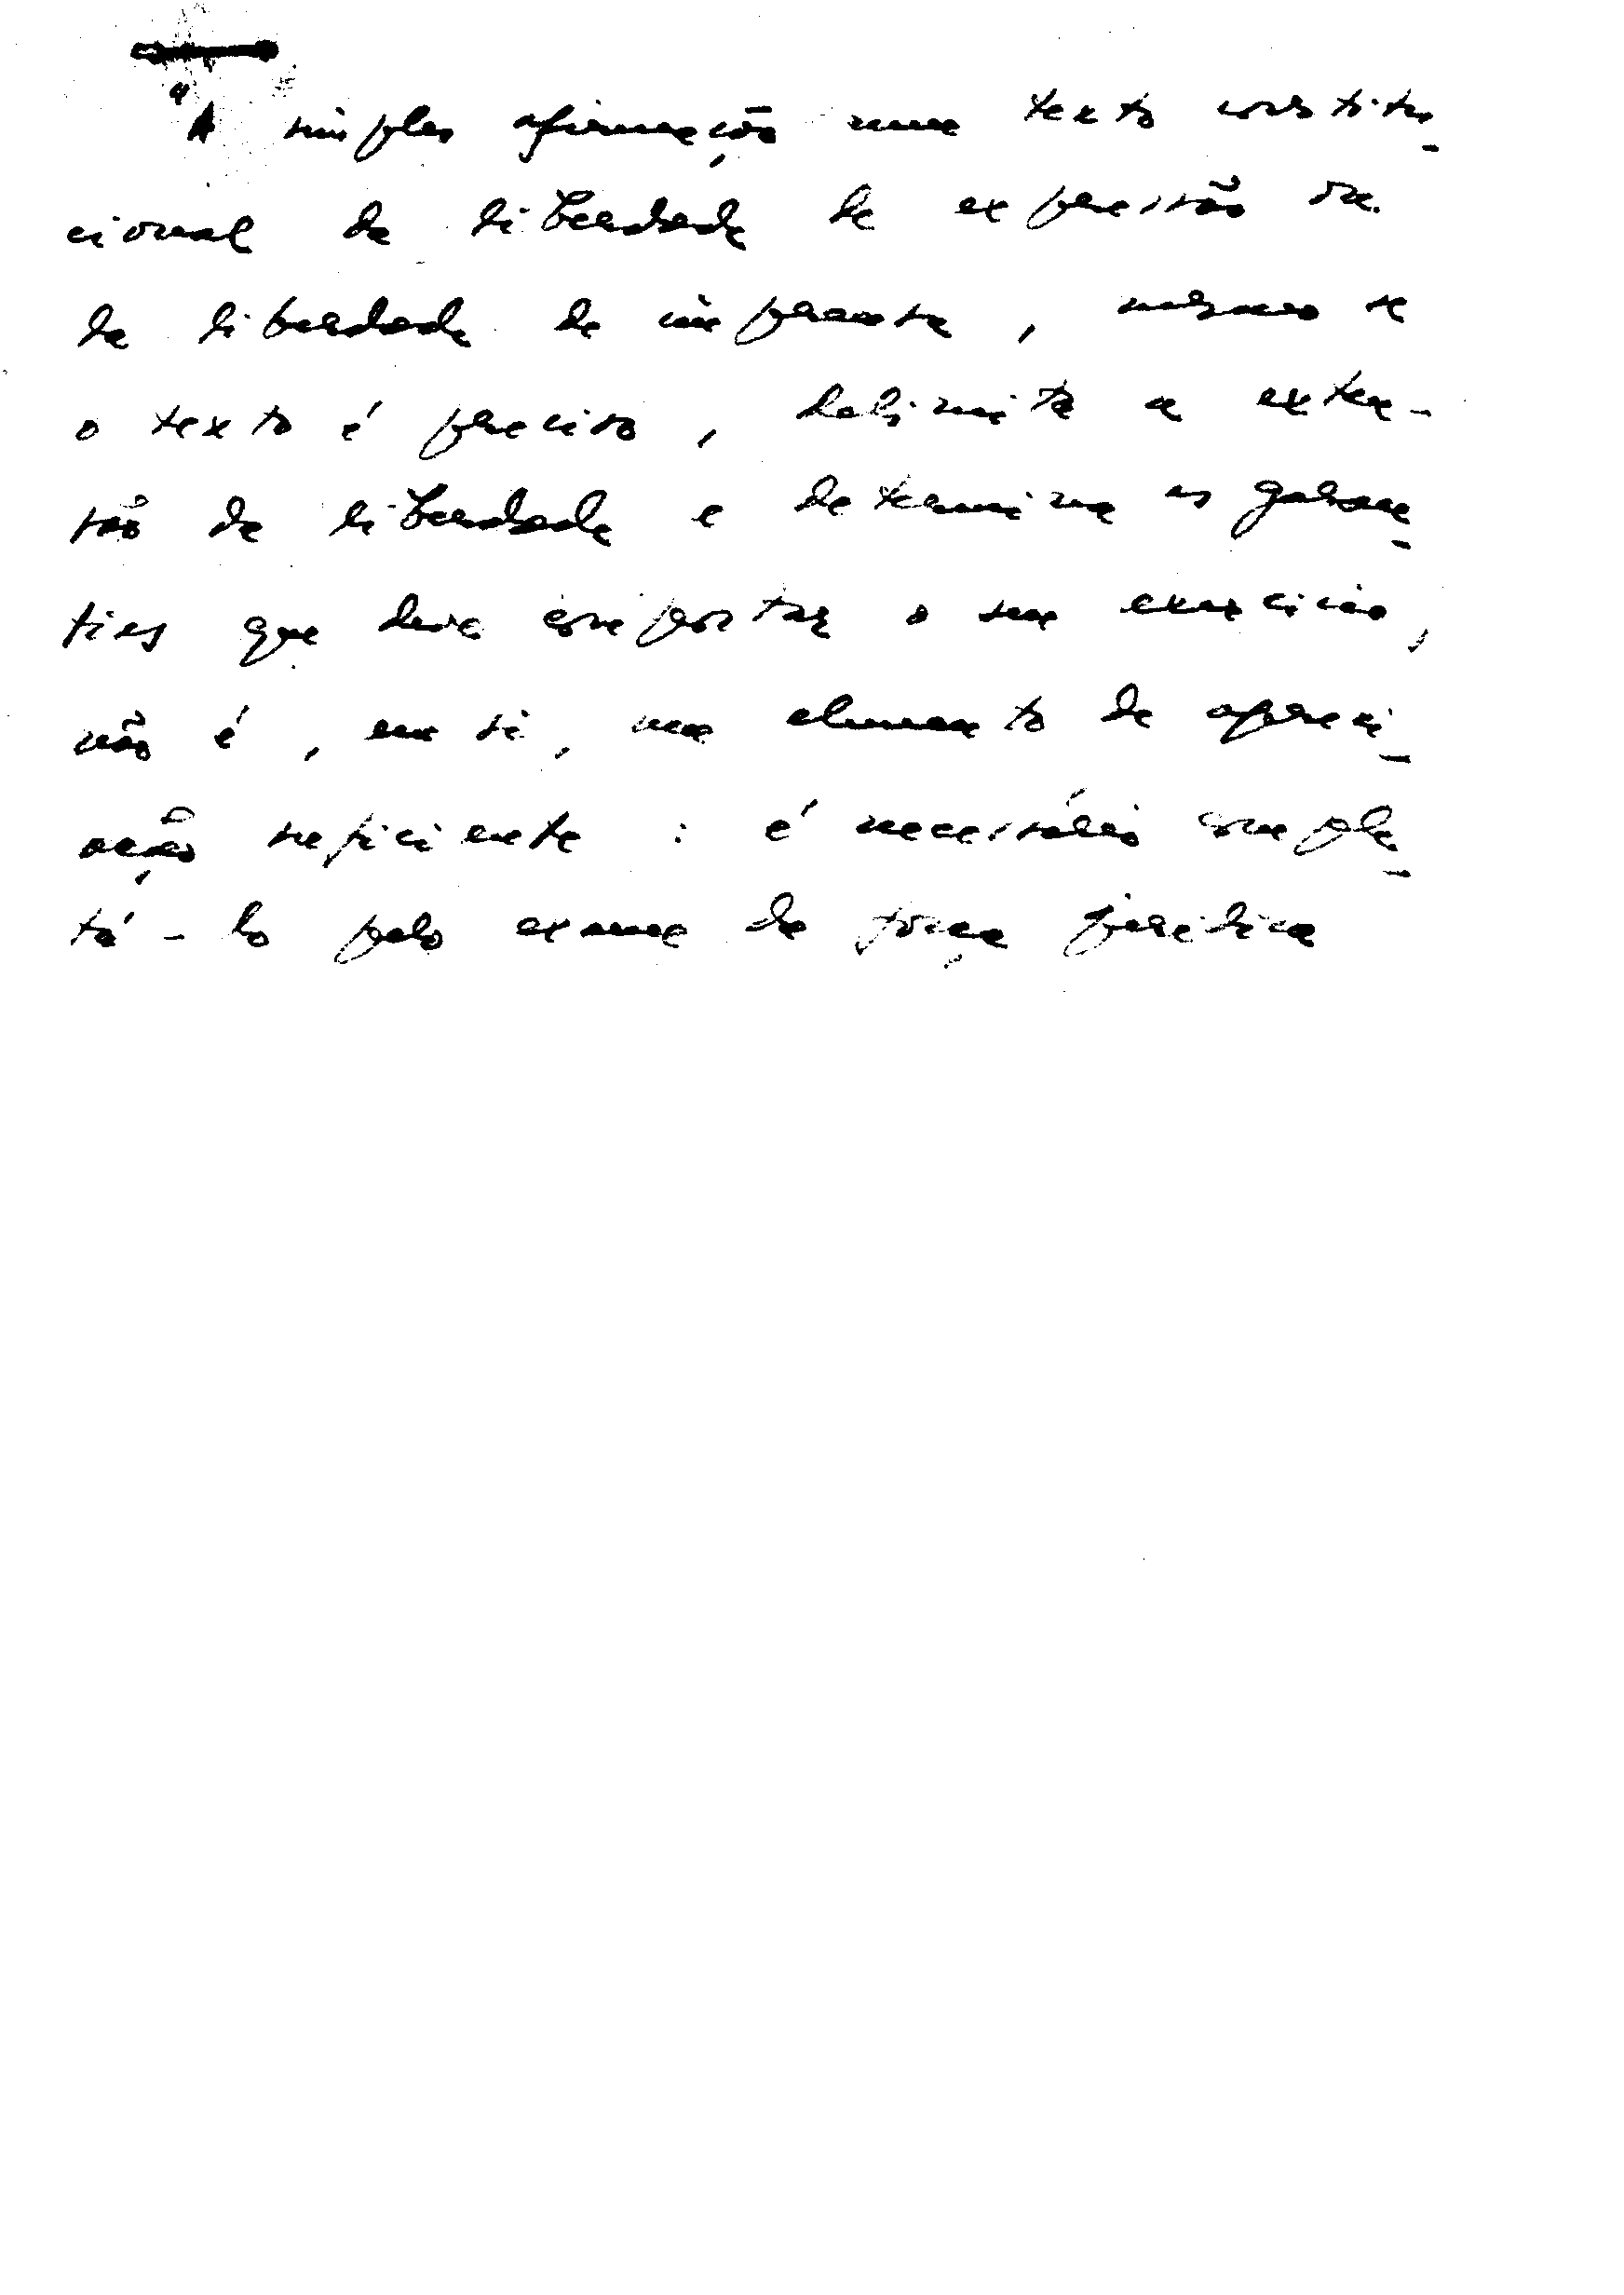 "A simples afirmação num texto constitu-
cional da liberdade de expressão ou
da liberdade de imprensa, mesmo se
o texto é preciso, delimita a exten-
são da liberdade e determina as garan-
tias que deve comportar o seu exercício,
não é, em si, um elemento de apreci-
ação suficiente : é necessário comple-
tá-lo pelo exame da força jurídica